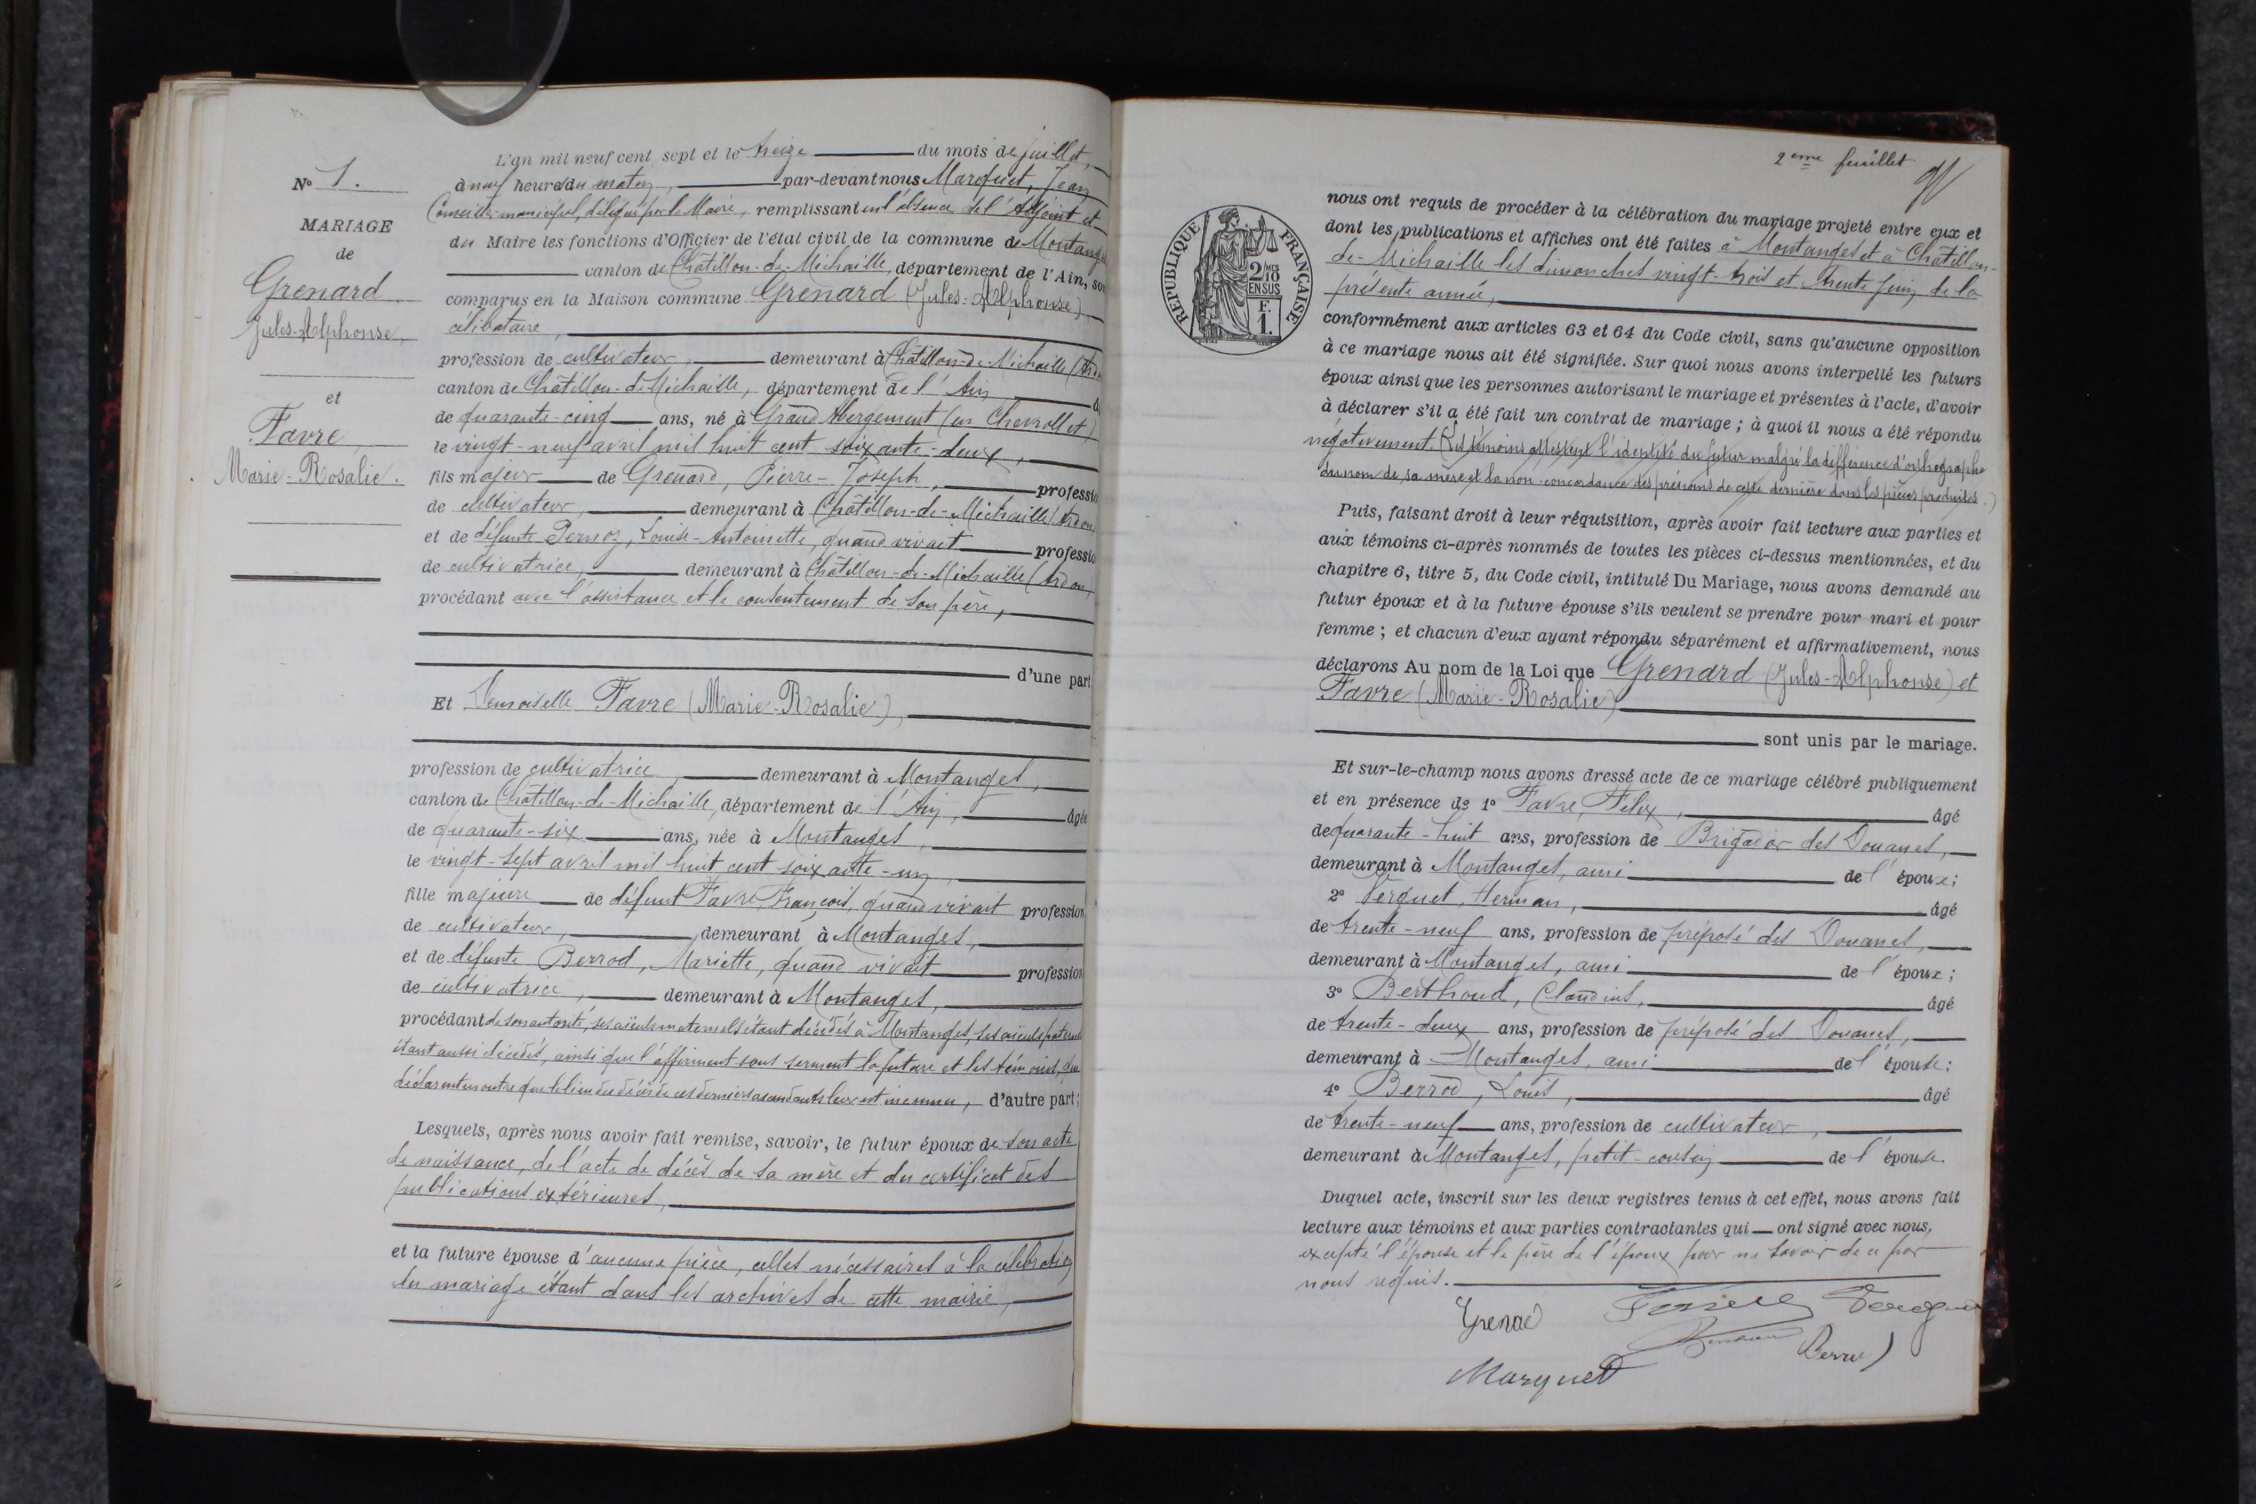 N° 1.
MARIAGE
de
Grenard
Jules-Alphonse,
et
Favre
Marie-Rosalie.
L'an mil neuf cent sept et le treize du mois de juillet,
à neuf heures du matin, par-devant nous Marquet, Jean
Conseiller municipal, délégué par le Maire, remplissant en l'absence de l'Adjoint et
du Maire les fonctions d'Officier de l'état civil de la commune de Montanges
canton de Châtillon-de-Michaille, département de l'Ain, son
comparus en la Maison commune Grenard (Jules-Alphonse)
célibataire,
profession de cultivateur, demeurant à Châtillon-de-Michaille (Ardon
canton de Châtillon-de-Michaille, département de l'Ain
de quarante-cinq ans, né à Grand Abergement (en Chevrollet)
le vingt-neuf avril mil huit cent soixante-deux,
fils majeur de Grenard, Pierre-Joseph, professio
de cultivateur, demeurant à Châtillon-de-Michaille (Ardon
et de défunte Pernoz, Louise-Antoinette, quand vivait professio
de cultivatrice, demeurant à Châtillon-de-Michaille (Ardon)
procédant avec l'assistance et le consentement de son père,
d'une part
Et Demoiselle Favre (Marie-Rosalie),
profession de cultivatrice, demeurant à Montanges,
canton de Châtillon-de-Michaille, département de l'Ain, âgée
de quarante-six ans, née à Montanges,
le vingt-sept avril mil huit cent soixante-un,
fille majeure de défunt Favre, François, quand vivait profession
de cultivateur, demeurant à Montanges,
et de défunte Berrod, Mariette, quand vivait profession
de cultivatrice, demeurant à Montanges,
procédant de son autorité, ses aïeuls maternels étant décédés à Montanges, ses aïeuls paternels
étant aussi décédés, ainsi que l'affirment sous serment la future et les témoins, qui
déclarent en outre que le lieu du décès de ces derniers ascendants leur est inconnu, d'autre part;
Lesquels, après nous avoir fait remise, savoir, le futur époux de son acte
de naissance, de l'acte de décès de sa mère et du certificat des
publications extérieures,
et la future épouse d'aucune pièce, celles nécessaires à la célébration
du mariage étant dans les archives de cette mairie,
2eme feuillet
RÉPUBLIQUE FRANÇAISE
2/10
EN SUS
F.
1.
nous ont requis de procéder à la célébration du mariage projeté entre eux et
dont les publications et affiches ont été faites à Montanges et à Châtillon-
de-Michaille les dimanches vingt-trois et trente juin de la
présente année,
conformément aux articles 63 et 64 du Code civil, sans qu'aucune opposition
à ce mariage nous ait été signifiée. Sur quoi nous avons interpellé les futurs
époux ainsi que les personnes autorisant le mariage et présentes à l'acte, d'avoir
à déclarer s'il a été fait un contrat de mariage; à quoi il nous a été répondu
négativement. (Les témoins attestent l'identité du futur malgré la différence d'orthographe
du nom de sa mère et la non-concordance des prénoms de cette dernière dans les pièces produites.)
Puis, faisant droit à leur réquisition, après avoir fait lecture aux parties et
aux témoins ci-après nommés de toutes les pièces ci-dessus mentionnées, et du
chapitre 6, titre 5, du Code civil, intitulé Du Mariage, nous avons demandé au
futur époux et à la future épouse s'ils veulent se prendre pour mari et pour
femme; et chacun d'eux ayant répondu séparément et affirmativement, nous
déclarons Au nom de la Loi que Grenard (Jules-Alphonse) et
Favre (Marie-Rosalie)
sont unis par le mariage.
Et sur-le-champ nous avons dressé acte de ce mariage célébré publiquement
et en présence de 1° Favre, Félix, âgé
de quarante-huit ans, profession de Brigadier des Douanes,
demeurant à Montanges, ami de l'épouse;
2° Verguet, Herman, âgé
de trente-neuf ans, profession de préposé des Douanes,
demeurant à Montanges, ami de l'épouse;
3° Berthoud, Claudius, âgé
de trente-deux ans, profession de préposé des Douanes,
demeurant à Montanges, ami de l'épouse;
4° Berrod, Louis, âgé
de trente-neuf ans, profession de cultivateur,
demeurant à Montanges, petit-cousin de l'épouse.
Duquel acte, inscrit sur les deux registres tenus à cet effet, nous avons fait
lecture aux témoins et aux parties contractantes qui ont signé avec nous,
excepté l'épouse et le père de l'époux pour ne savoir de ce par
nous requis.
Grenard
Berrod
Marquet